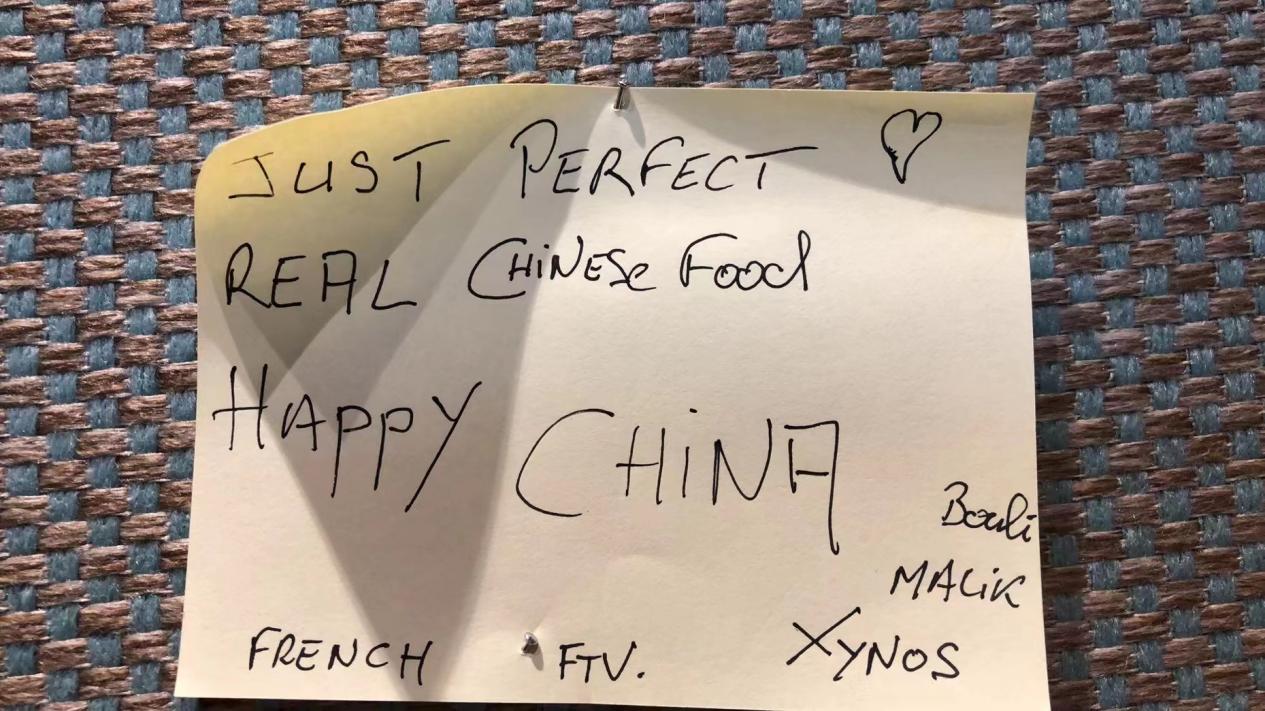 JUST PERFECT ♡
REAL CHiNESe Food
HAPPY CHiNA
Bouli
MALiK
FRENCH FTV. XYNOS